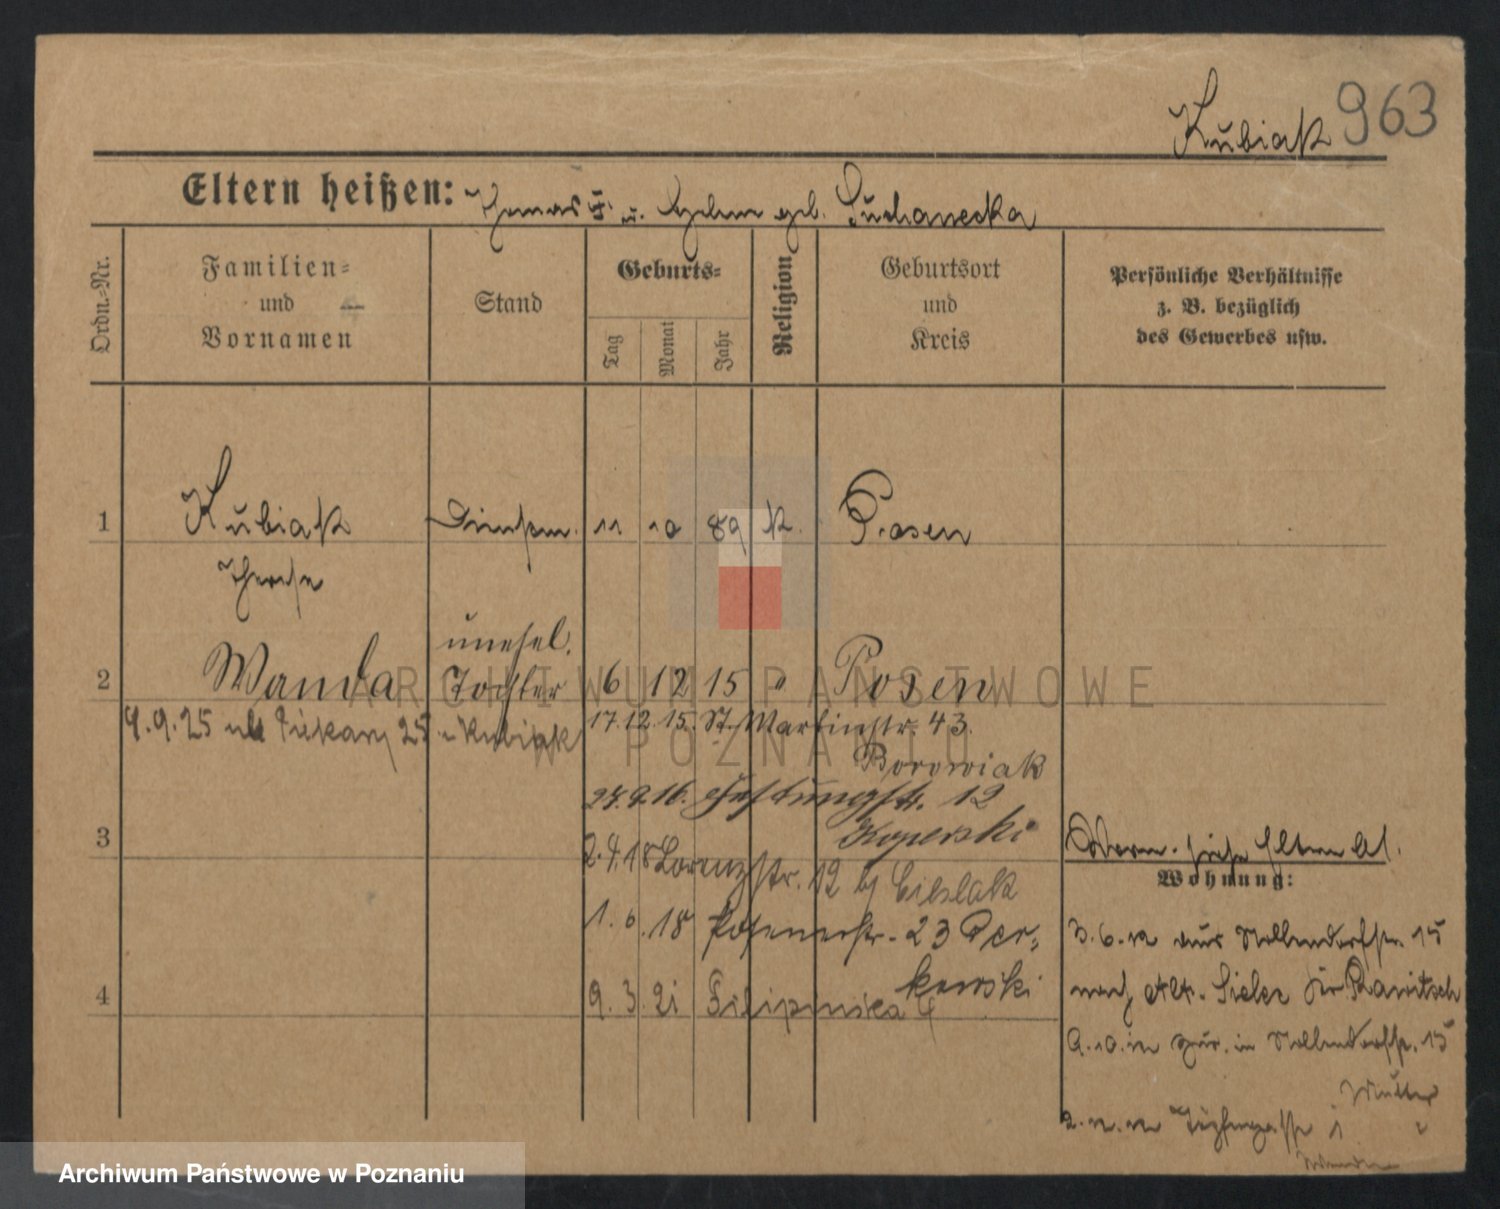 Kubiak 963
Eltern heißen: Thomas u. geb. Suchanecka
Ordn.-Nr.
Familien-
und
Vornamen
Stand
Geburts-
Tag
Monat
Jahr
Religion
Geburtsort
und
Kreis
Persönliche Verhältnisse
z. B. bezüglich
des Gewerbes usw.
1 Kubiak 11 10 89 k. Posen
Therese
unehel.
2 Wanda Tochter 6 12 15 " Posen
9.9.25 25 Kubiak
17.12.15. St. Martinstr. 43.
Borowiak
9.16. 12
Koperski
3
2.4.18 Lorenzstr. 12 b/ Cieslak
1.6.18 Posenerstr. 23 Per-
kowski
4
9.3.21 Filipinska 4
siehe Eltern bl.
Wohnung:
3.6.12 aus Nollendorfstr. 15
nach Rawitsch
9.10. zur. in Nollendorfstr. 15
Mutter
ARCHIWUM PAŃSTWOWE
W POZNANIU
Archiwum Państwowe w Poznaniu